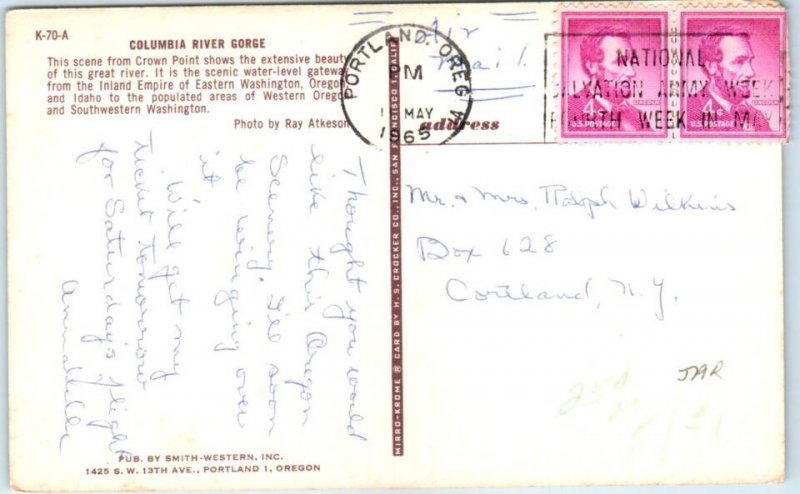 K-70-A
COLUMBIA RIVER GORGE
This scene from Crown Point shows the extensive beauty
of this great river. It is the scenic water-level gateway
from the Inland Empire of Eastern Washington, Oregon
and Idaho to the populated areas of Western Oregon
and Southwestern Washington.
Photo by Ray Atkeson
Thought you would
like this Oregon
Scenery. I'll soon
be winging over
it
Will get my
ticket tomorrow
for Saturday's flight
PUB. BY SMITH-WESTERN, INC.
1425 S. W. 13TH AVE., PORTLAND 1, OREGON
MIRRO-KROME ® CARD BY H. S. CROCKER CO., INC., SAN FRANCISCO 1, CALIF.
Air
Mail
PORTLAND, OREG
PM
MAY
1965
NATIONAL
SALVATION ARMY WEEK
FOURTH WEEK IN MAY
4¢ LINCOLN
U.S. POSTAGE
4¢ LINCOLN
U.S. POSTAGE
address
Mr. & Mrs. Ralph Wilkins
Box 628
Cortland, N.Y.
JAR